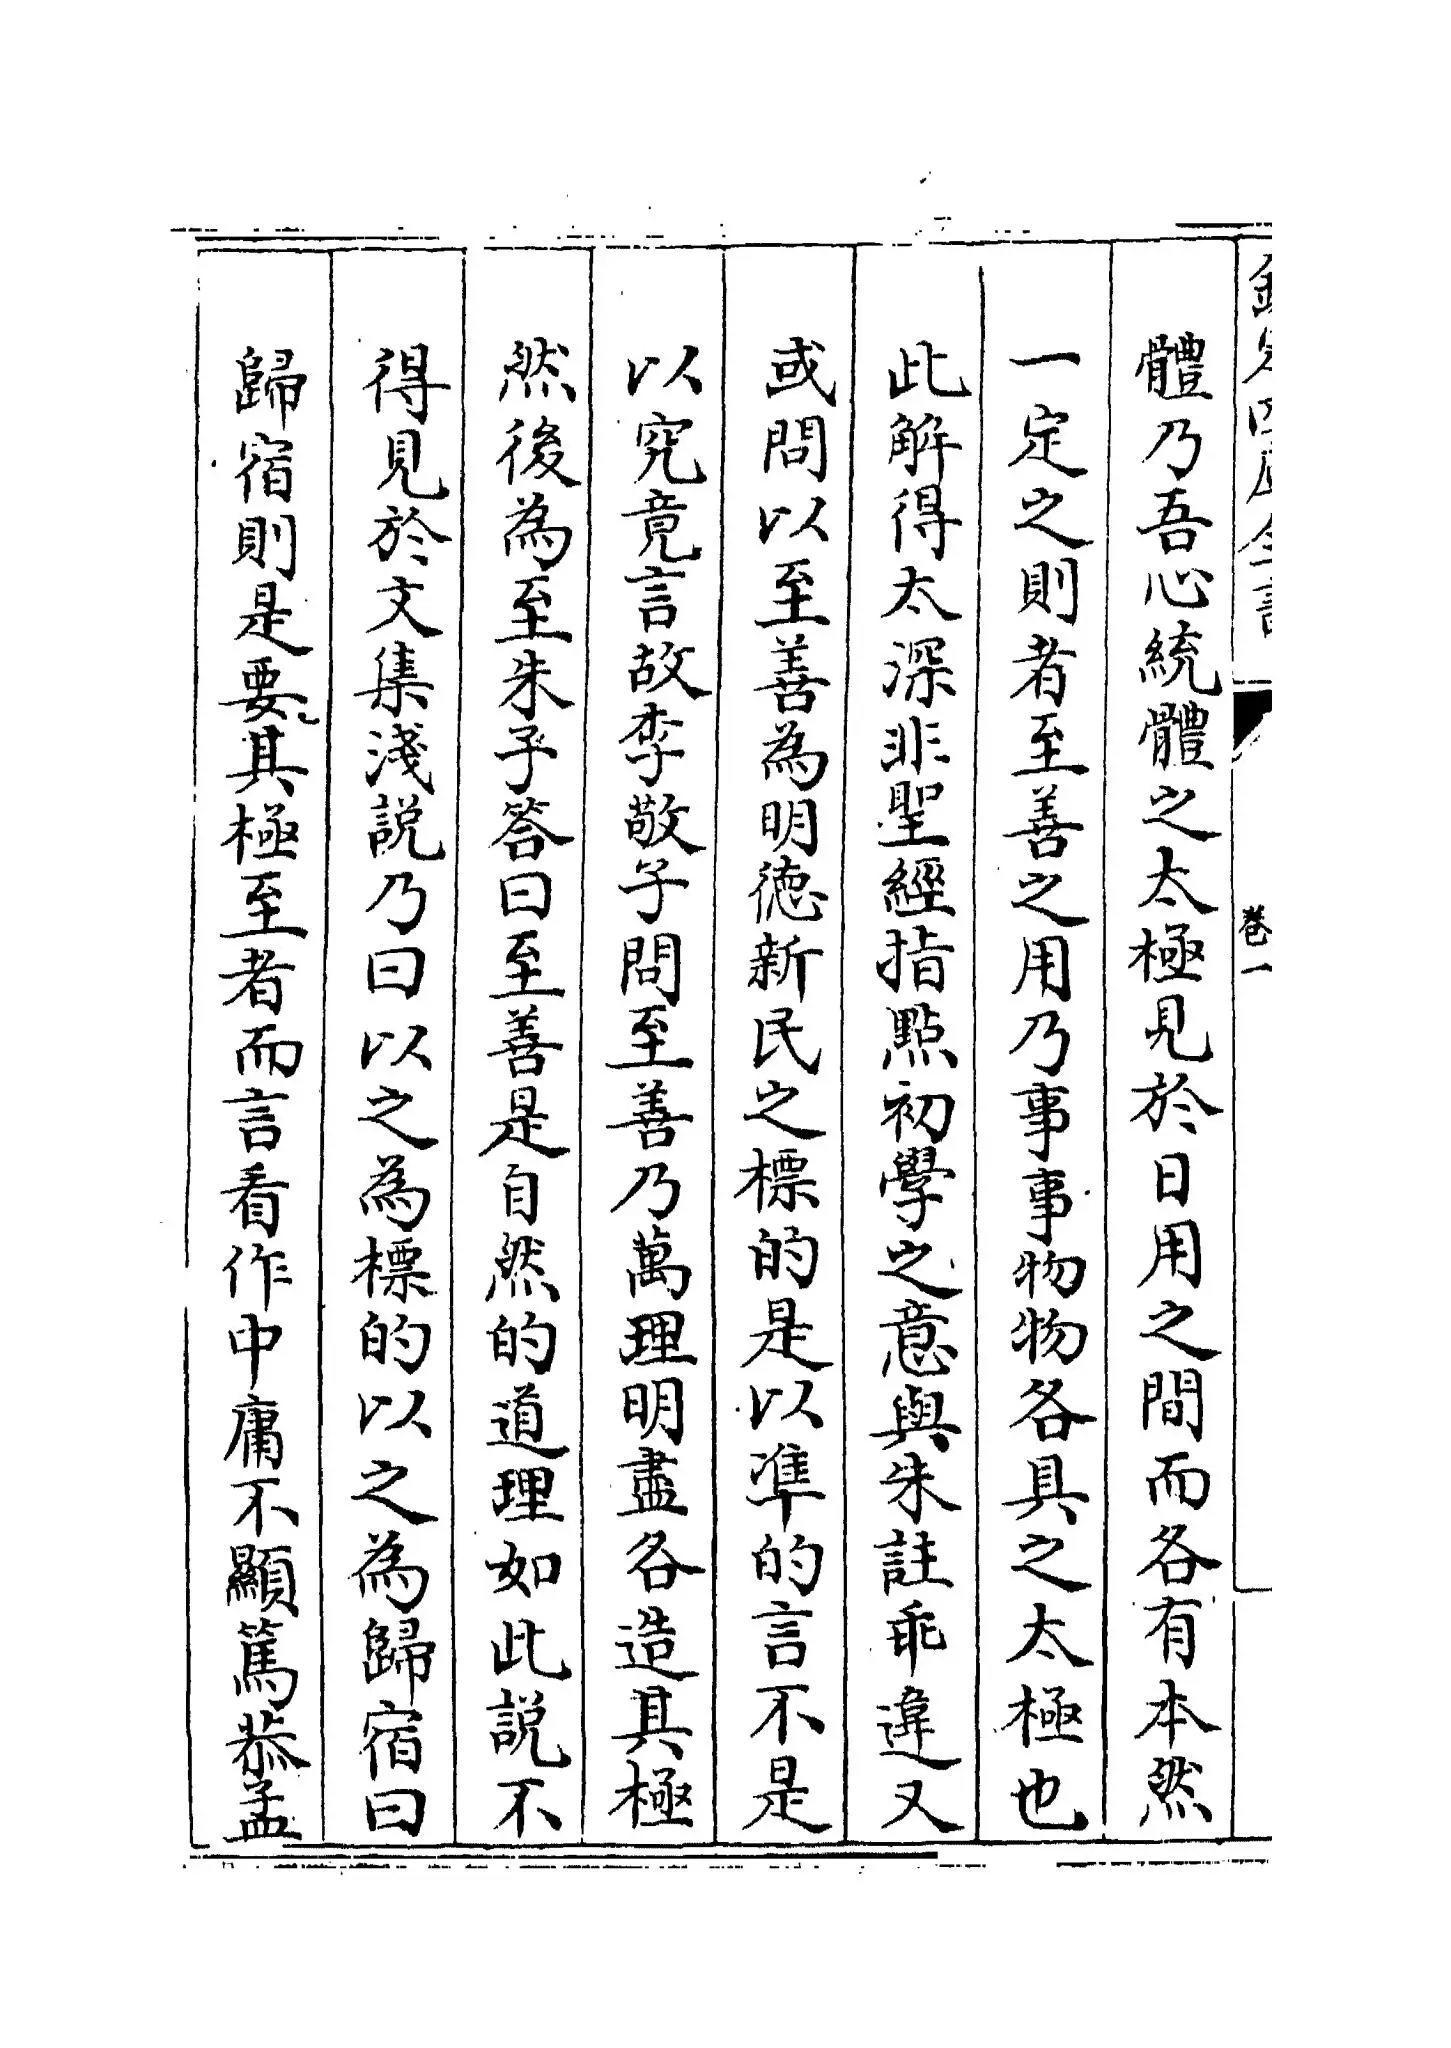 欽定四庫全書
卷一
體乃吾心統體之太極見於日用之間而各有本然
一定之則者至善之用乃事事物物各具之太極也
此解得太深非聖經指點初學之意與朱註乖違又
或問以至善為明德新民之標的是以準的言不是
以究竟言故李敬子問至善乃萬理明盡各造其極
然後為至朱子答曰至善是自然的道理如此說不
得見於文集淺說乃曰以之為標的以之為歸宿曰
歸宿則是要其極至者而言看作中庸不顯篤恭孟